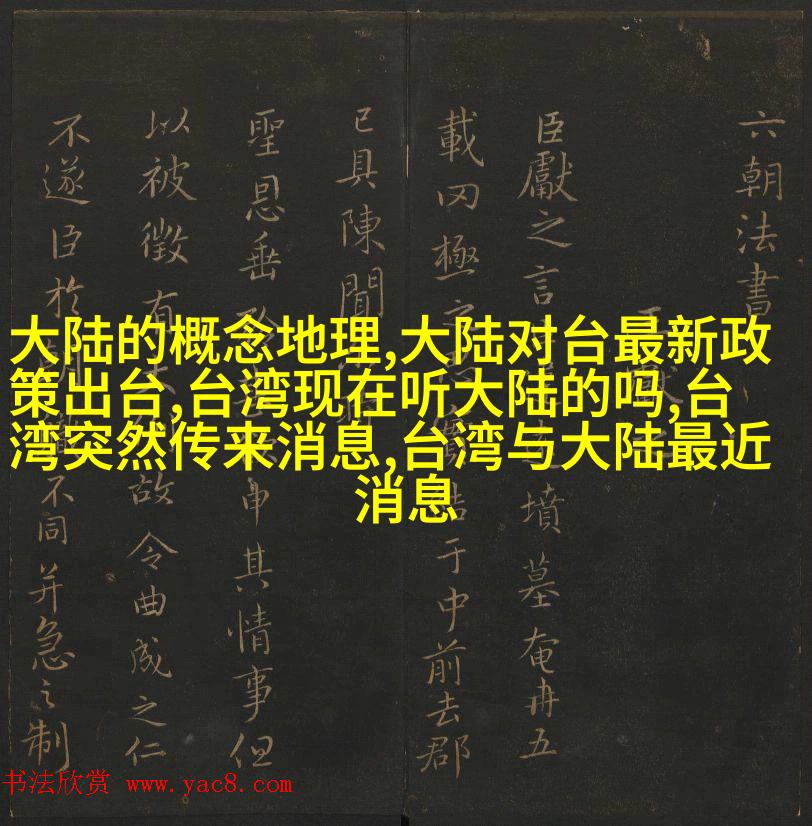 大陆的概念地理,大陆对台最新政
策出台,台湾现在听大陆的吗,台
湾突然传来消息,台湾与大陆最近
消息
六朝法書
臣獻之言 墳墓奄冉五
載罔極 于中前去郡
已具陳聞
聖恩垂 申其情事但
以被徵有 故令曲成之仁
不遂臣於 不同并急之制
书法欣赏 www.yac8.com